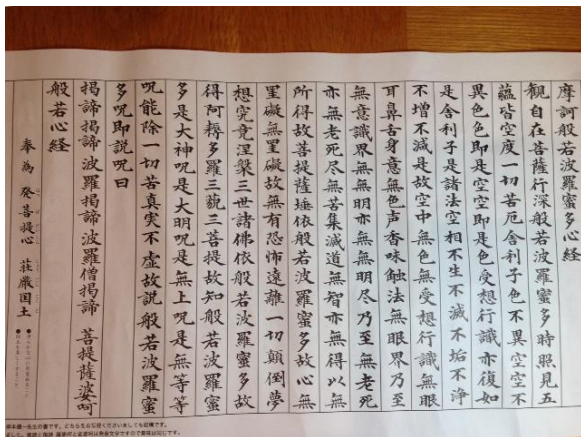 摩訶般若波羅蜜多心経
観自在菩薩行深般若波羅蜜多時照見五
蘊皆空度一切苦厄舎利子色不異空空不
異色色即是空空即是色受想行識亦復如
是舎利子是諸法空相不生不滅不垢不浄
不増不減是故空中無色無受想行識無眼
耳鼻舌身意無色声香味触法無眼界乃至
無意識界無無明亦無無明尽乃至無老死
亦無老死尽無苦集滅道無智亦無得以無
所得故菩提薩埵依般若波羅蜜多故心無
罣礙無罣礙故無有恐怖遠離一切顛倒夢
想究竟涅槃三世諸佛依般若波羅蜜多故
得阿耨多羅三藐三菩提故知般若波羅蜜
多是大神呪是大明呪是無上呪是無等等
呪能除一切苦真実不虚故説般若波羅蜜
多呪即説呪曰
掲諦掲諦 波羅掲諦 波羅僧掲諦 菩提薩婆呵
般若心経
奉為 発菩提心 荘厳国土